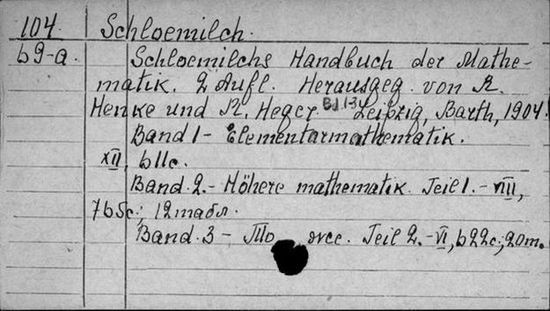 104 Schloemilch.
69-a. Schloemilchs Handbuch der Mathe-
matik. 2 Aufl. Herausgeg. von R.
Henke und R. Heger. Bd. 1-3. Leipzig, Barth, 1904.
Band 1 - Elementarmathematik.
XII, 611c.
Band 2. - Höhere mathematik. Teil 1. - VIII,
765c.; 12 табл.
Band. 3 - То же. Teil 2. - VI, 622c.; 20т.